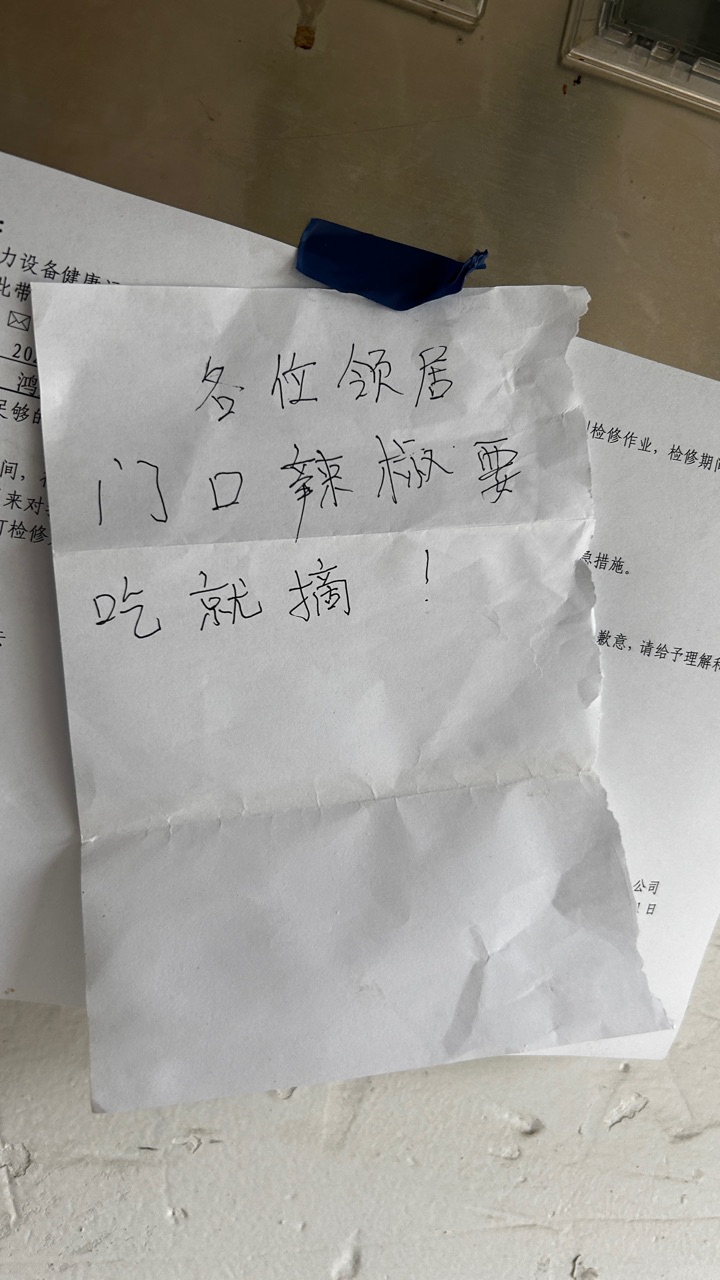 各位领居
门口辣椒要
吃就摘！
力设备健康
此带
20
鸿
足够的
间，
来对
检修
检修作业，检修期间
急措施。
歉意，请给予理解和
公司
1日